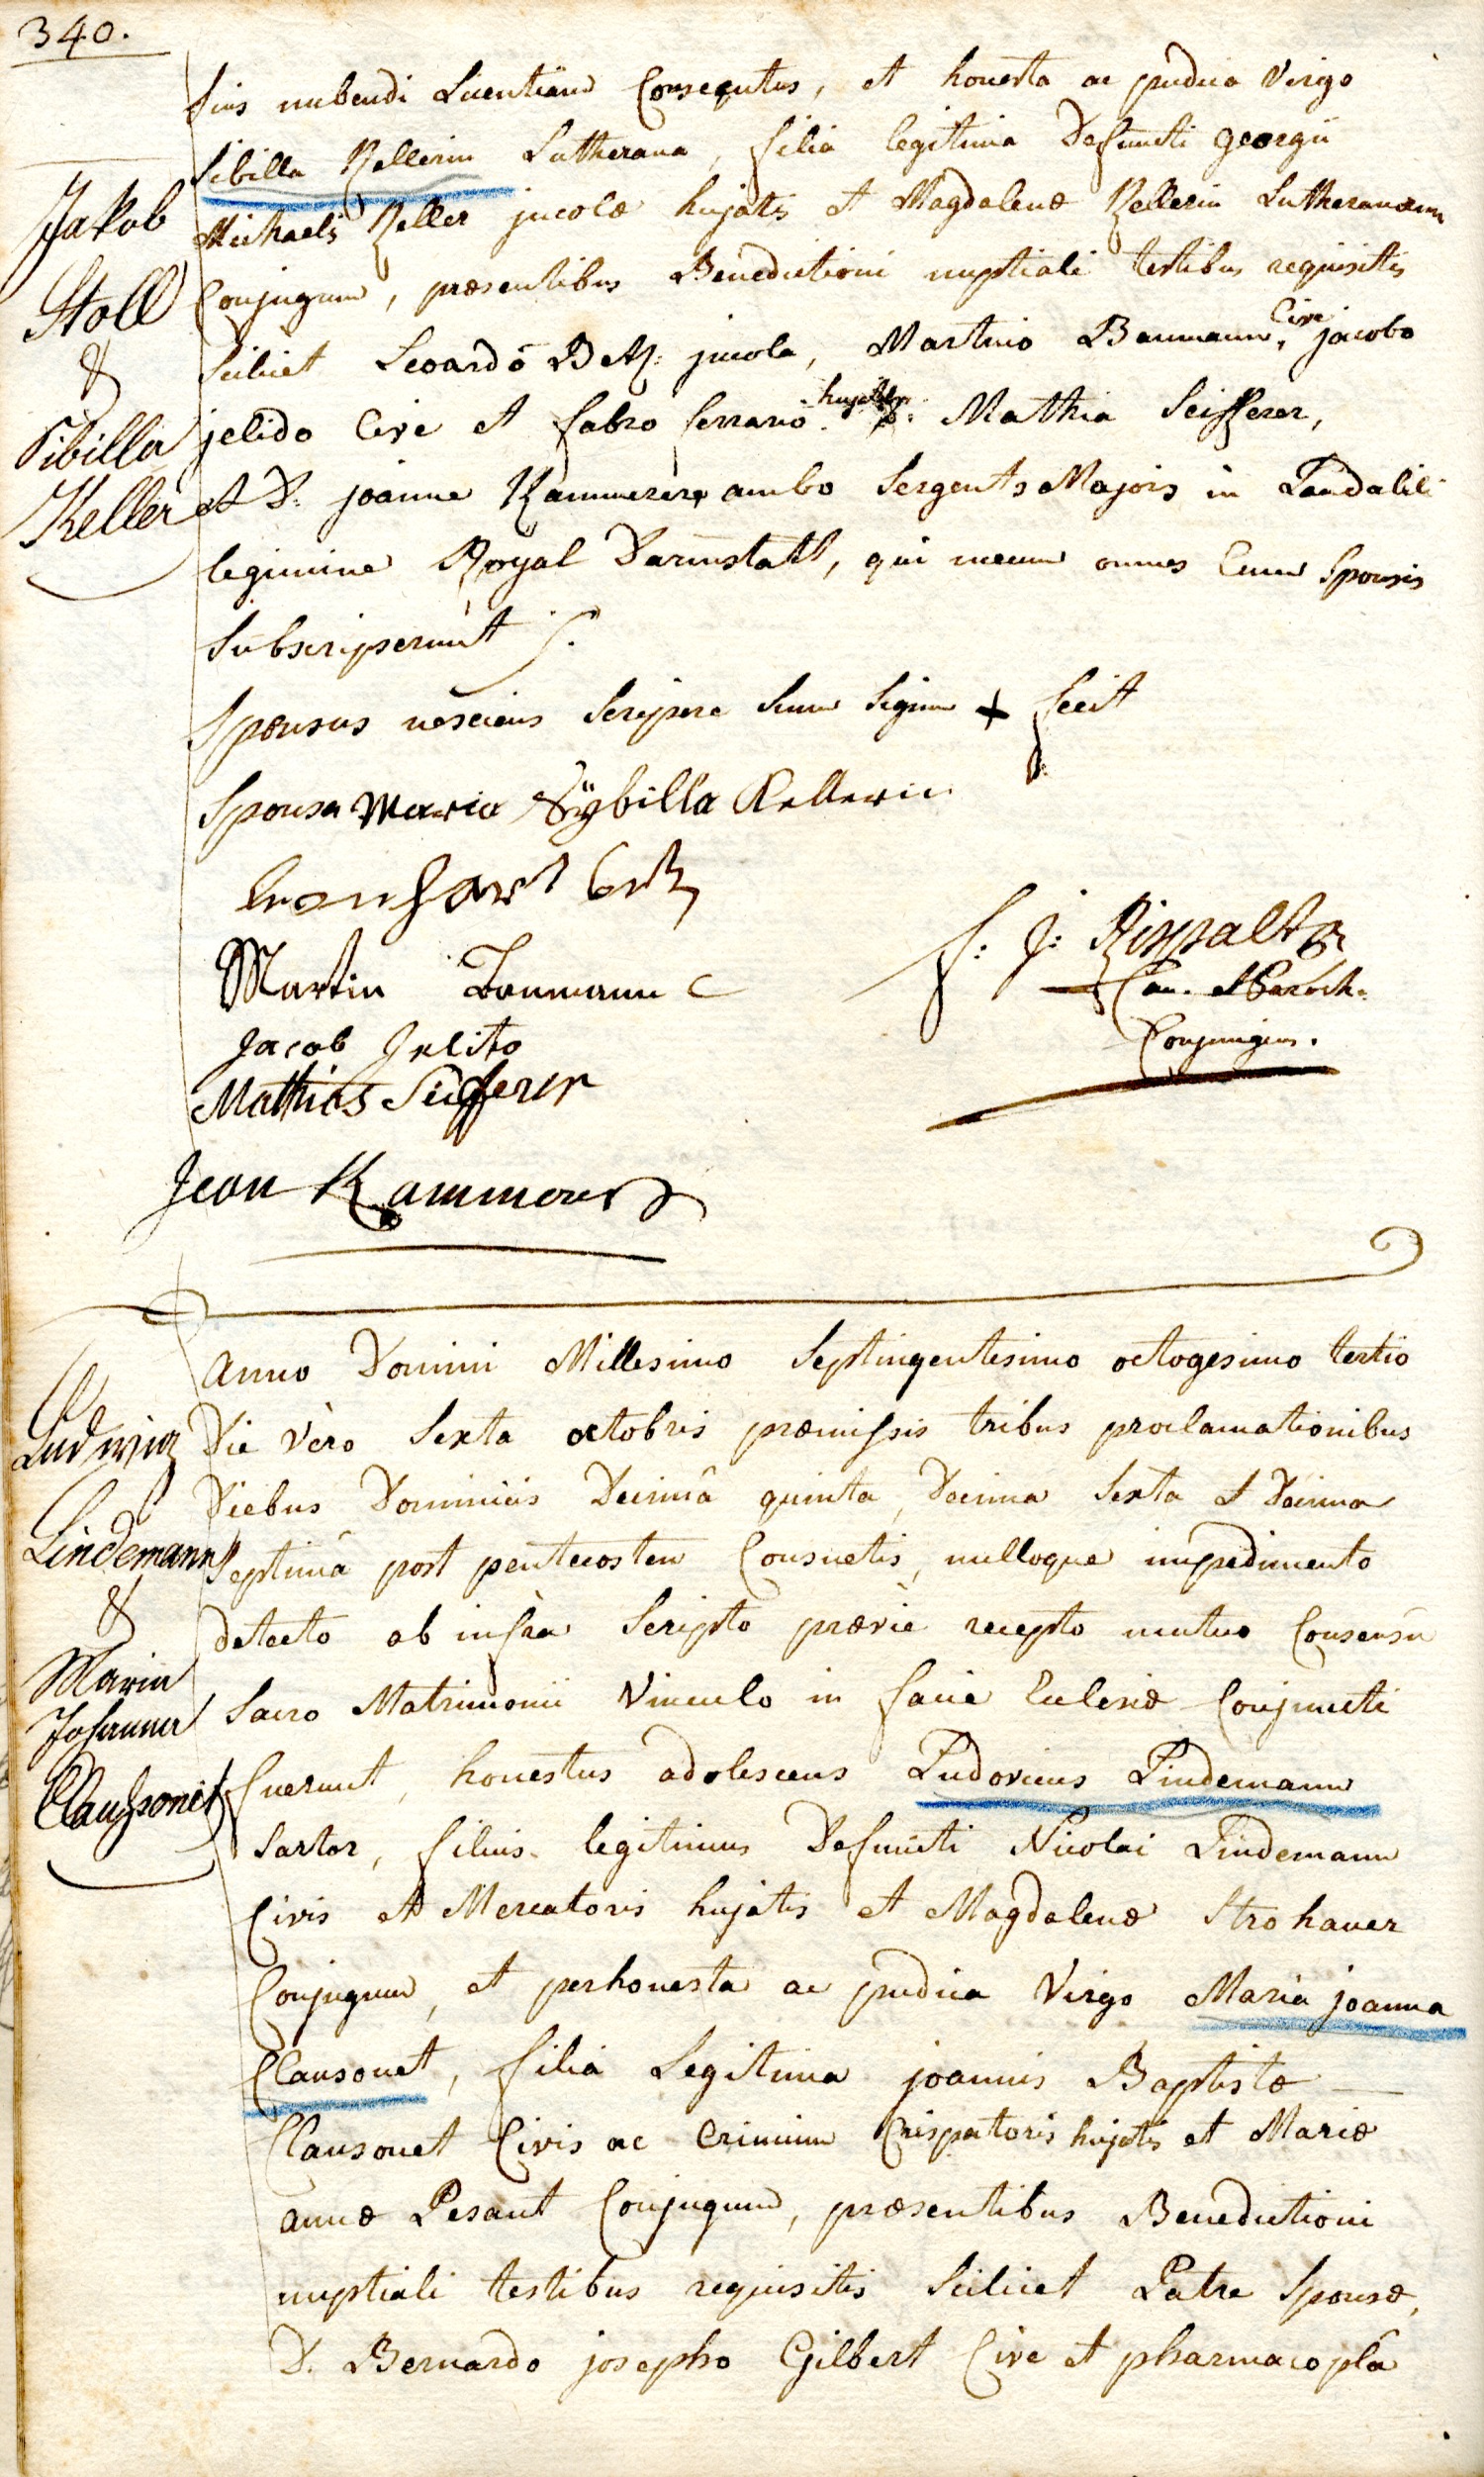 340.
suis nubendi Licentiam Consequtus, et honesta ac pudica Virgo
Sibilla Kellerin Lutherana, filia legitima Defuncti georgii
Michaelis Keller jncolæ hujatis et Magdalenæ Kellerin Lutheranorum
Conjugum, præsentibus Benedictioni nuptiali testibus requisitis
Scilicet Leoardo jncola, Martino Baumann Cive, jacobo
jelido Cive et fabro ferrario hujatibus D: Mathia Seifferer,
et D: joanne Kammerer ambo Sergents Majors in Laudabili
legimine Royal Darmstatt, qui mecum omnes Cum Sponsis
Subscripserunt
Sponsus nesciens Scripere Suum Signum + fecit
Sponsa Maria Sÿbilla Kellerin
Leonhart
Martin Baumann
Jacob Jelito
Mathias Seifferer
Jean Kammerer
f: J: Rispalt
Can. et Paroch.
Conjungens.
Jakob
Stoll
&
Sibilla
Keller
Anno Domini Millesimo Septingentesimo octogesimo tertio
Die vero Sexta octobris præmissis tribus proclamationibus
Diebus Dominicis Decimâ quinta, Decima Sexta et Decima
Septimâ post pentecosten Consuetis, nulloque impedimento
detecto ab infra Scripto prævie recepto mutuo Consensu
Sacro Matrimonii Vinculo in facie Eclesiæ Conjuncti
fuerunt, honestus adolescens Ludovicus Lindemann
Sartor, filius legitimus Defuncti Nicolai Lindemann
Civis et Mercatoris hujatis et Magdalenæ Strohauer
Conjugum, et perhonesta ac pudica Virgo Maria joanna
Clausonet, filia Legitima joannis Baptistæ
Clausonet Civis ac Crinium Crispatoris hujatis et Mariæ
annæ Pesant Conjugum, præsentibus Benedictioni
nuptiali testibus requisitis Scilicet Patre Sponsæ,
D. Bernardo josepho Gilbert Cive et pharmacoplâ
Ludwig
Lindemann
&
Maria
Johanna
Claussonet